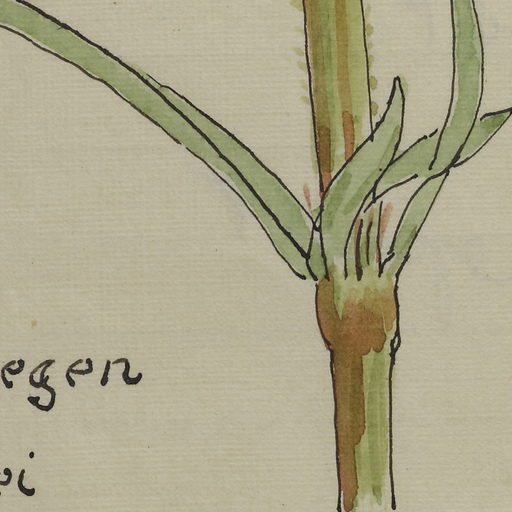 egen
ei